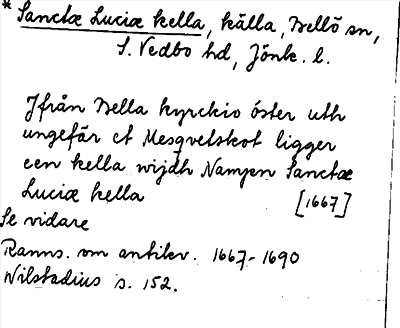 * Sanctæ Luciæ kella, källa, Bellö sn,
S. Vedbo hd, Jönk. l.
Jfrån Bella kyrckio öster uth
ungefär et Mesqvetskot ligger
een kella wijdh Nampn Sanctæ
Luciæ kella [1667]
Se vidare
Ranns. om antikv. 1667-1690
Wilstadius s. 152.